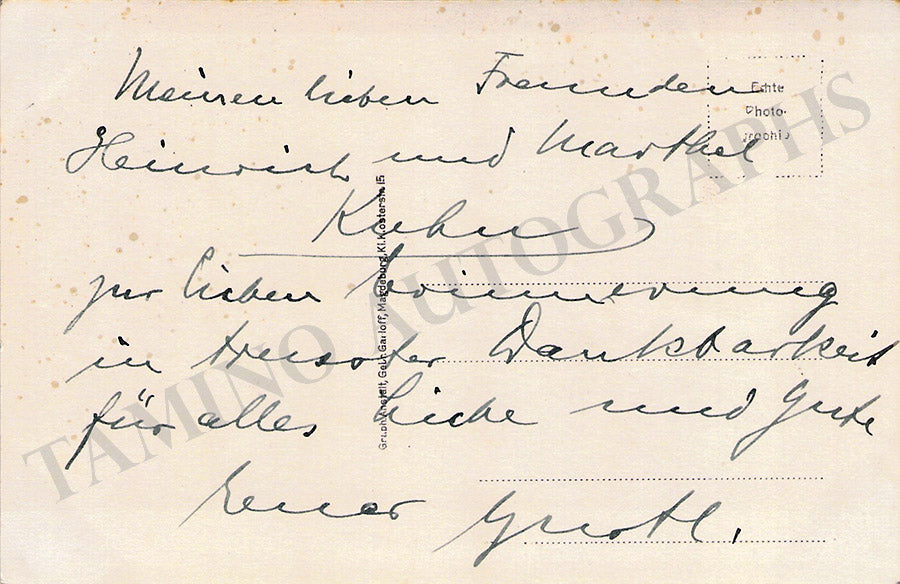 Meinen lieben Freunden
Echte
Photo-
graphie
Heinrich und Marthel
Kuhn
zur lieben Erinnerung
in treuster Dankbarkeit
für alles Liebe und Gute
Euer
Graph. Anstalt, Gebr. Garloff, Magdeburg, Kl. Klosterstr. 15
TAMINO AUTOGRAPHS